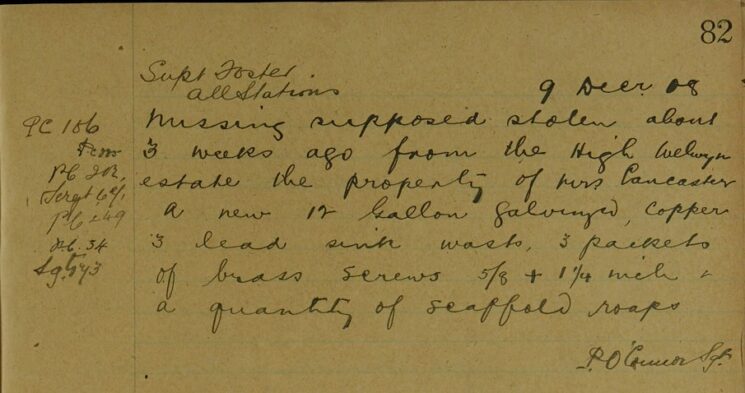 82
Supt Foster
All Stations
9 Decr 08
Missing supposed stolen about
3 weeks ago from the High Welwyn
estate the property of Mrs Lancaster
A new 12 Gallon galvinzed, copper
3 lead sink wasts, 3 packets
of brass screws 5/8 + 1 1/4 inch &
a quantity of scaffold roaps
P. O'Connor Sgt
PC 106
PC 202,
Sergt
PC 249
P.C. 34
Sgt